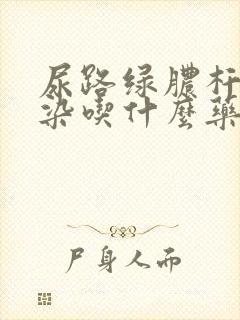 尿路绿膿杆
染喫什麽藥
尸身人而